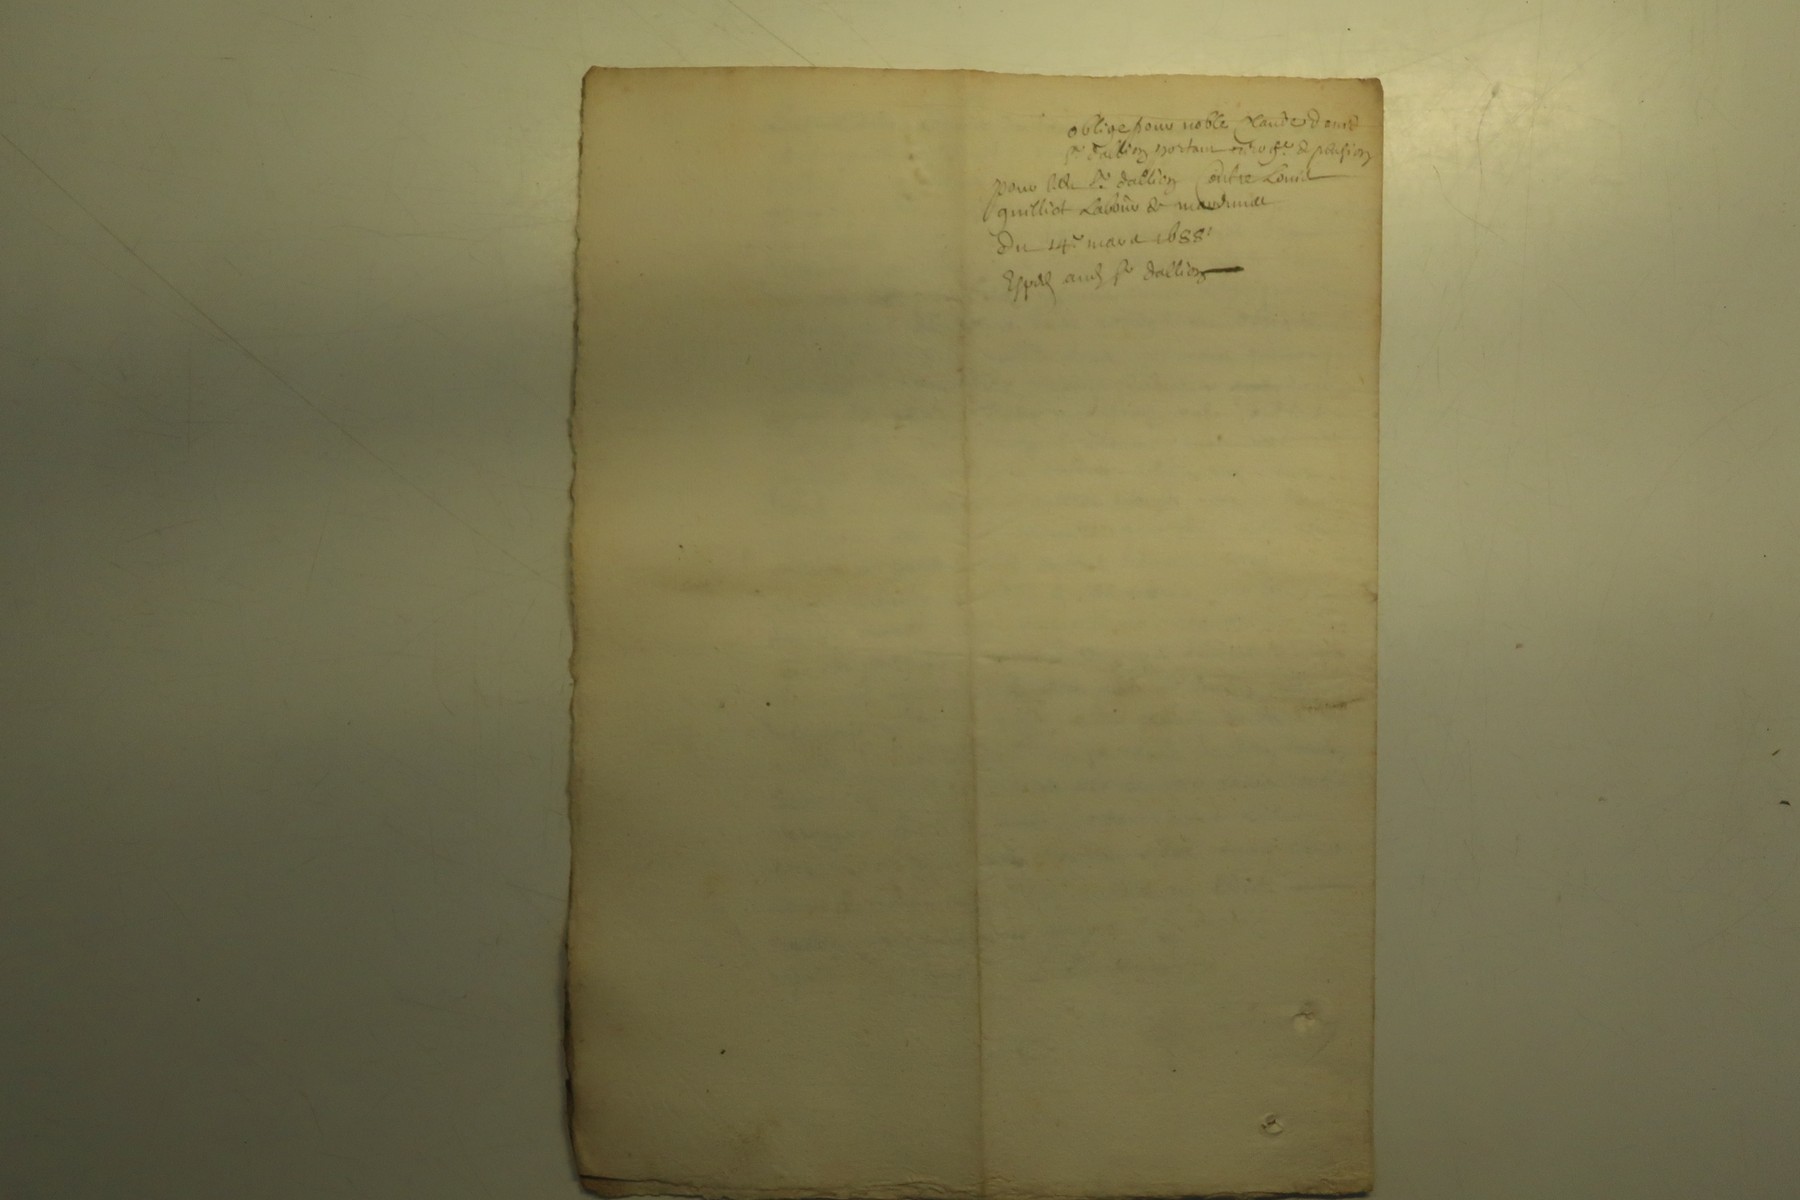 oblige pour noble Claude
Sr dallion portant de pension
pour ledt Sr dallion contre Louis
quilliot Labour de
Du 14e mars 1688
Expedé aud Sr dallion